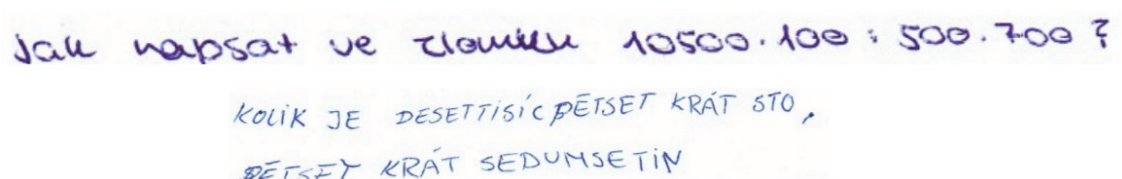 Jak napsat ve zlomku 10500.100 : 500.700 ?
KOLIK JE DESETTISÍCPĚTSET KRÁT STO,
PĚTSET KRÁT SEDUMSETIN